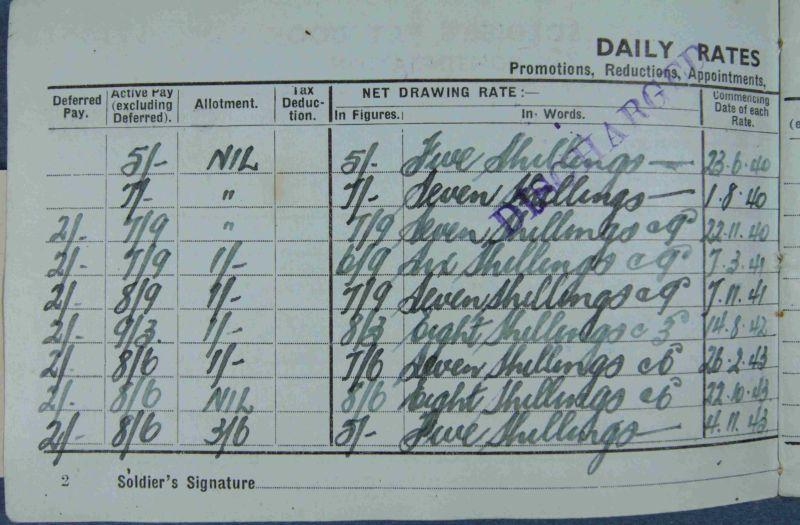 DAILY RATES
Promotions, Reductions, Appointments,
Deferred Pay. Active Pay (excluding Deferred). Allotment. Tax Deduc- tion. NET DRAWING RATE:— In Figures. In Words. Commencing Date of each Rate.
DISCHARGED
5/- NIL 5/- Five Shillings — 23·6·40
7/- " 7/- Seven Shillings — 1·8·40
2/- 7/9 " 7/9 Seven Shillings & 9d 22·11·40
2/- 7/9 1/- 6/9 Six Shillings & 9d 7·3·41
2/- 8/9 1/- 7/9 Seven Shillings & 9d 7·11·41
2/- 9/3. 1/- 8/3 Eight Shillings & 3d 14·8·42
2/- 8/6 1/- 7/6 Seven Shillings & 6d 26·2·43
2/- 8/6 NIL 8/6 Eight Shillings & 6d 22·10·43
2/- 8/6 3/6 5/- Five Shillings — 4·11·43
2 Soldier's Signature